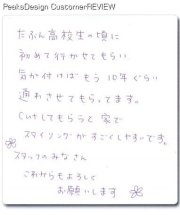 PeeksDesign CustomerREVIEW
たぶん高校生の頃に
初めて行かせてもらい
気が付けばもう10年ぐらい
通わさせてもらってます。
Cutしてもらうと家で
スタイリングがすごくしやすいです。
スタッフのみなさん
これからもよろしく
お願いします